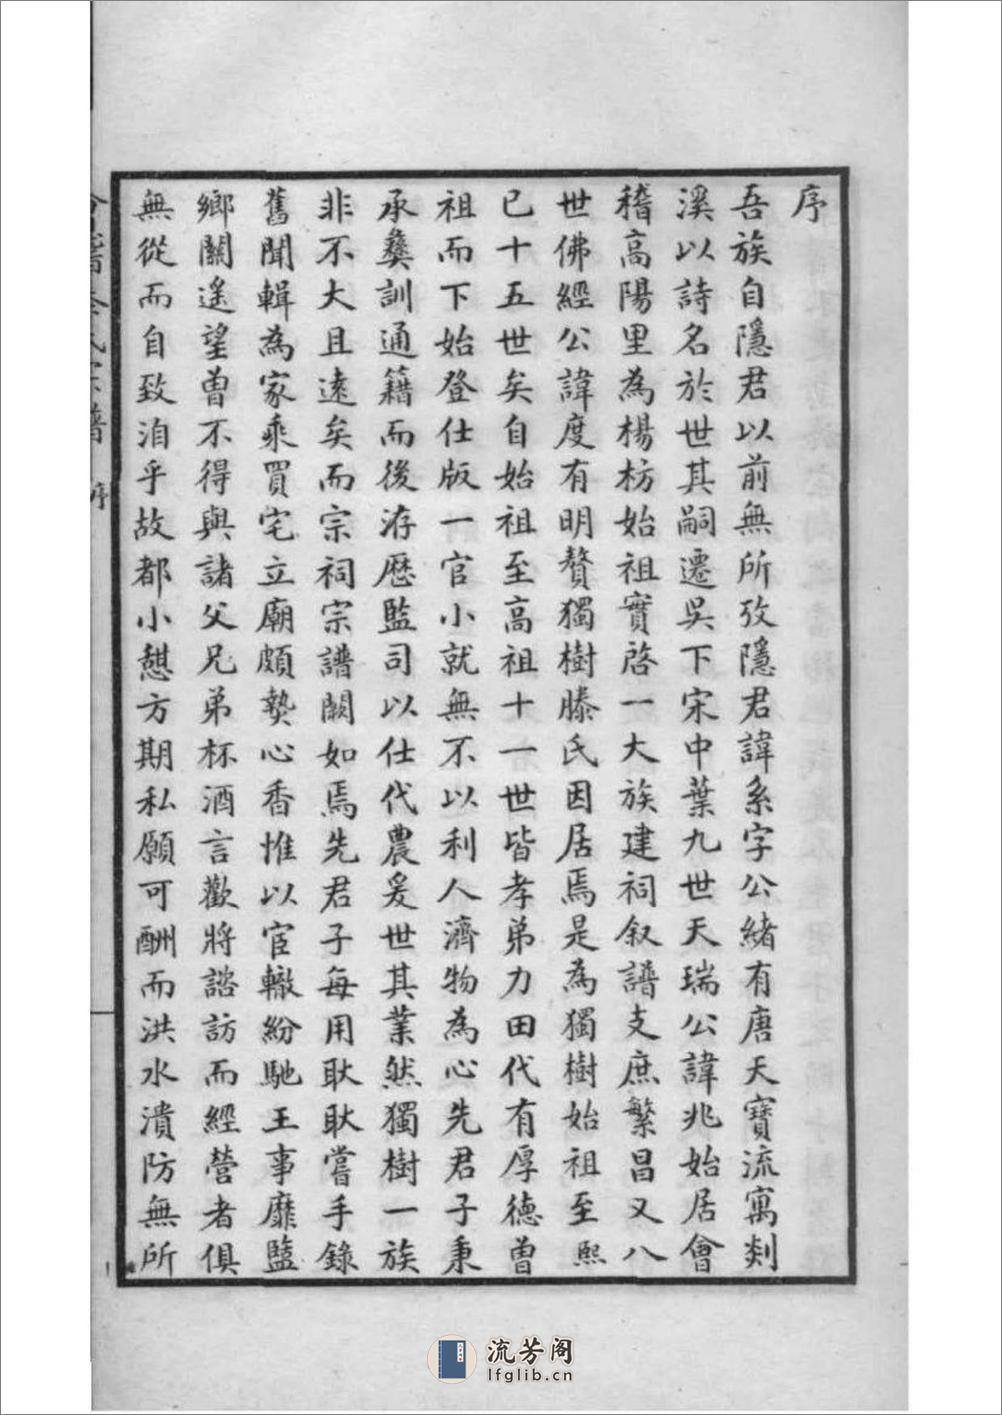 序
吾族自隱君以前無所攷隱君諱系字公緒有唐天寶流寓剡
溪以詩名於世其嗣遷吳下宋中葉九世天瑞公諱兆始居會
稽高陽里為楊枋始祖實啓一大族建祠叙譜支庶繁昌又八
世佛經公諱度有明贅獨樹滕氏因居焉是為獨樹始祖至熙
已十五世矣自始祖至高祖十一世皆孝弟力田代有厚德曾
祖而下始登仕版一官小就無不以利人濟物為心先君子秉
承彝訓通籍而後洊歷監司以仕代農爰世其業然獨樹一族
非不大且遠矣而宗祠宗譜闕如焉先君子每用耿耿嘗手錄
舊聞輯為家乘買宅立廟頗摯心香惟以宦轍紛馳王事靡盬
鄉關遙望曾不得與諸父兄弟杯酒言歡將諮訪而經營者俱
無從而自致洎乎故都小憇方期私願可酬而洪水潰防無所
氏宗譜 序
流芳阁
lfglib.cn